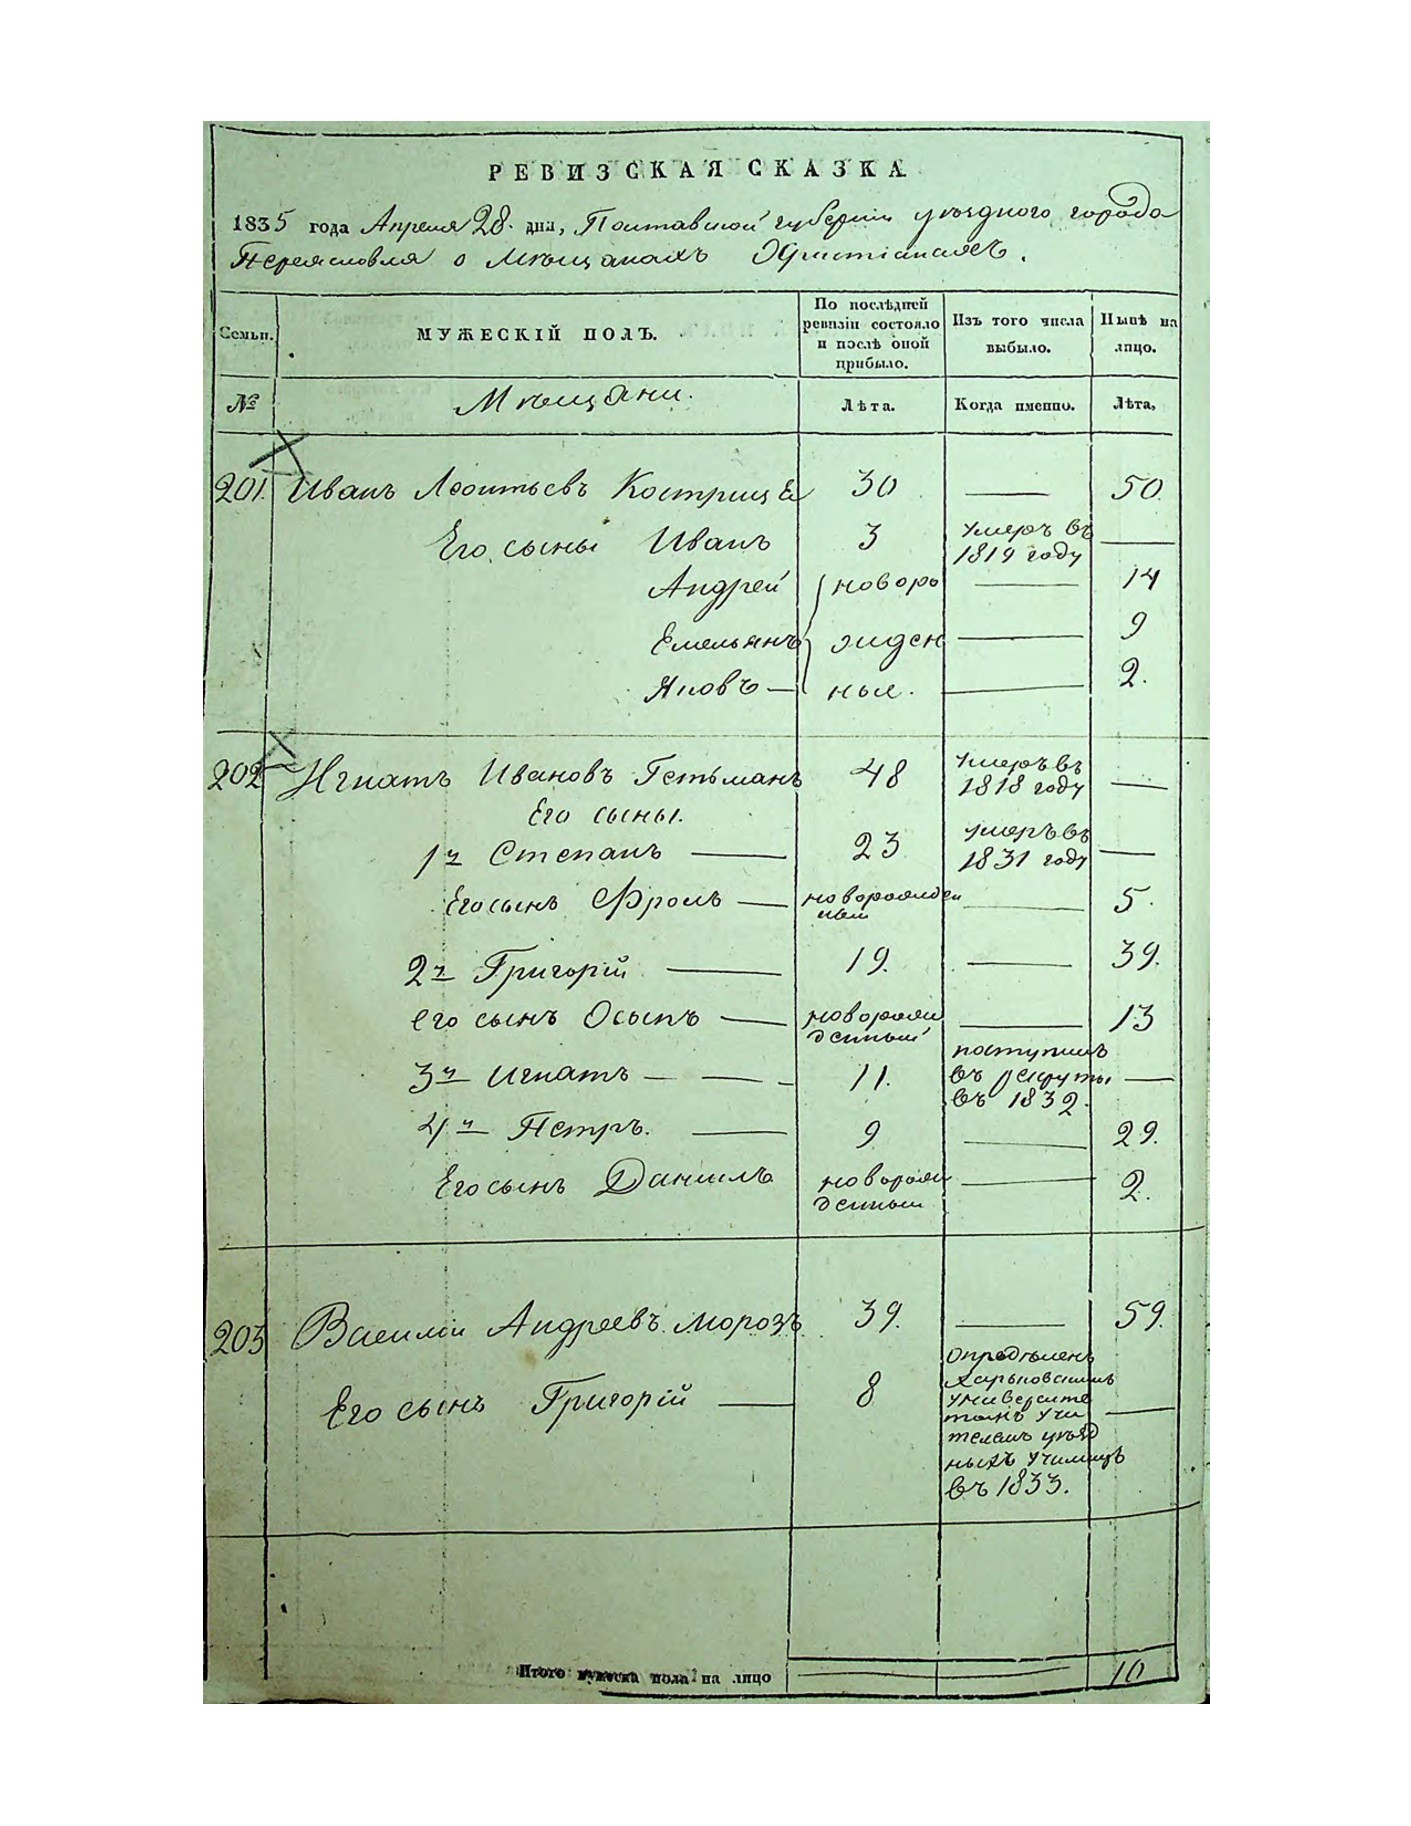 РЕВИЗСКАЯ СКАЗКА
1835 года Апреля 28. дня, Полтавской губерніи уѣзднаго города
Переяславля о Мѣщанахъ Христіанахъ.
Семьи. МУЖЕСКІЙ ПОЛЪ. По послѣдней ревизіи состояло и послѣ оной прибыло. Изъ того числа выбыло. Нынѣ на лицо.
№ Мѣщани. Лѣта. Когда именно. Лѣта,
201. Иванъ Леонтьевъ Кострица 30 — 50.
Его сыны Иванъ 3 умеръ въ 1819 году —
Андрей новоро — 14
Емельянъ жден — 9
Яковъ — ные. — 2.
202 Игнатъ Ивановъ Гетьманъ 48 умеръ въ 1818 году —
Его сыны.
1й Степанъ — 23 умеръ въ 1831 году —
Его сынъ Фролъ — новорожден ный — 5.
2й Григорій — 19. — 39.
его сынъ Осыпъ — новорож денный — 13
3й Игнатъ — — - 11. поступилъ въ рекруты въ 1832. —
4й Петръ. — 9 — 29.
Его сынъ Данилъ новорож денный — 2.
203 Василій Андреевъ Морозъ 39. — 59.
Его сынъ Григорій — 8 опредѣленъ
Харьковскимъ
университе
томъ учи —
телемъ уѣзд
ныхъ училищъ
въ 1833.
Итого мужеска пола на лицо — 10